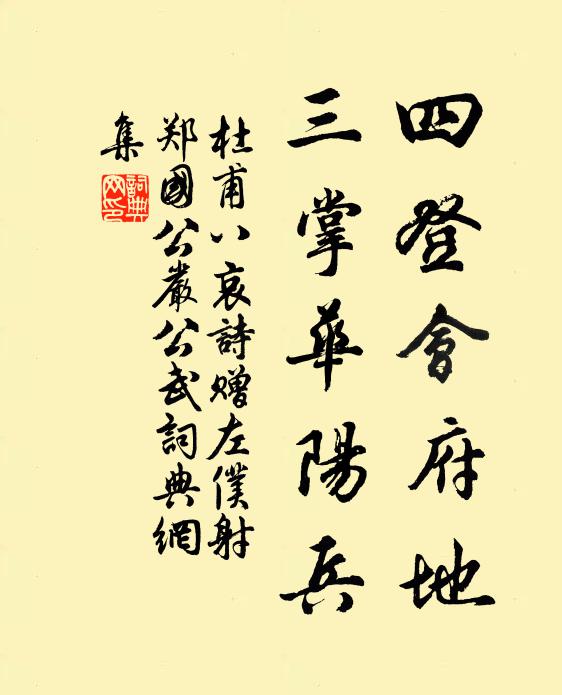 四登會府地
三掌華陽兵
杜甫八哀詩贈左僕射
郑國公嚴公武詞典網
集
詞典
网印